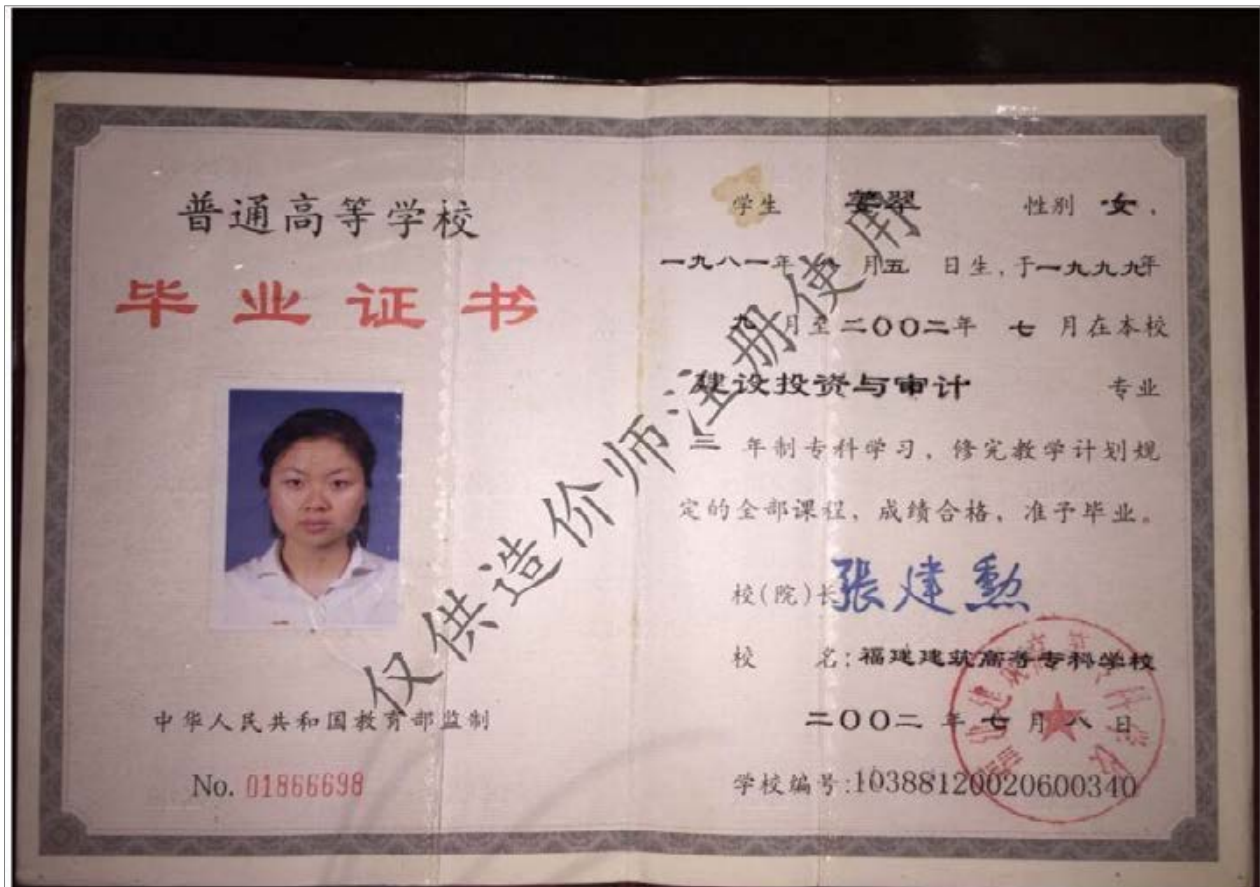 普通高等学校
毕业证书
中华人民共和国教育部监制
No. 01866698
学生 翠 性别 女,
一九八一年 月五 日生,于一九九九年
九 月至二〇〇二年 七 月在本校
建设投资与审计 专业
三 年制专科学习,修完教学计划规
定的全部课程,成绩合格,准予毕业。
校(院)长 張建勳
校 名:福建建筑高等专科学校
二〇〇二年七月八日
学校编号:10388120020600340
仅供造价师注册使用